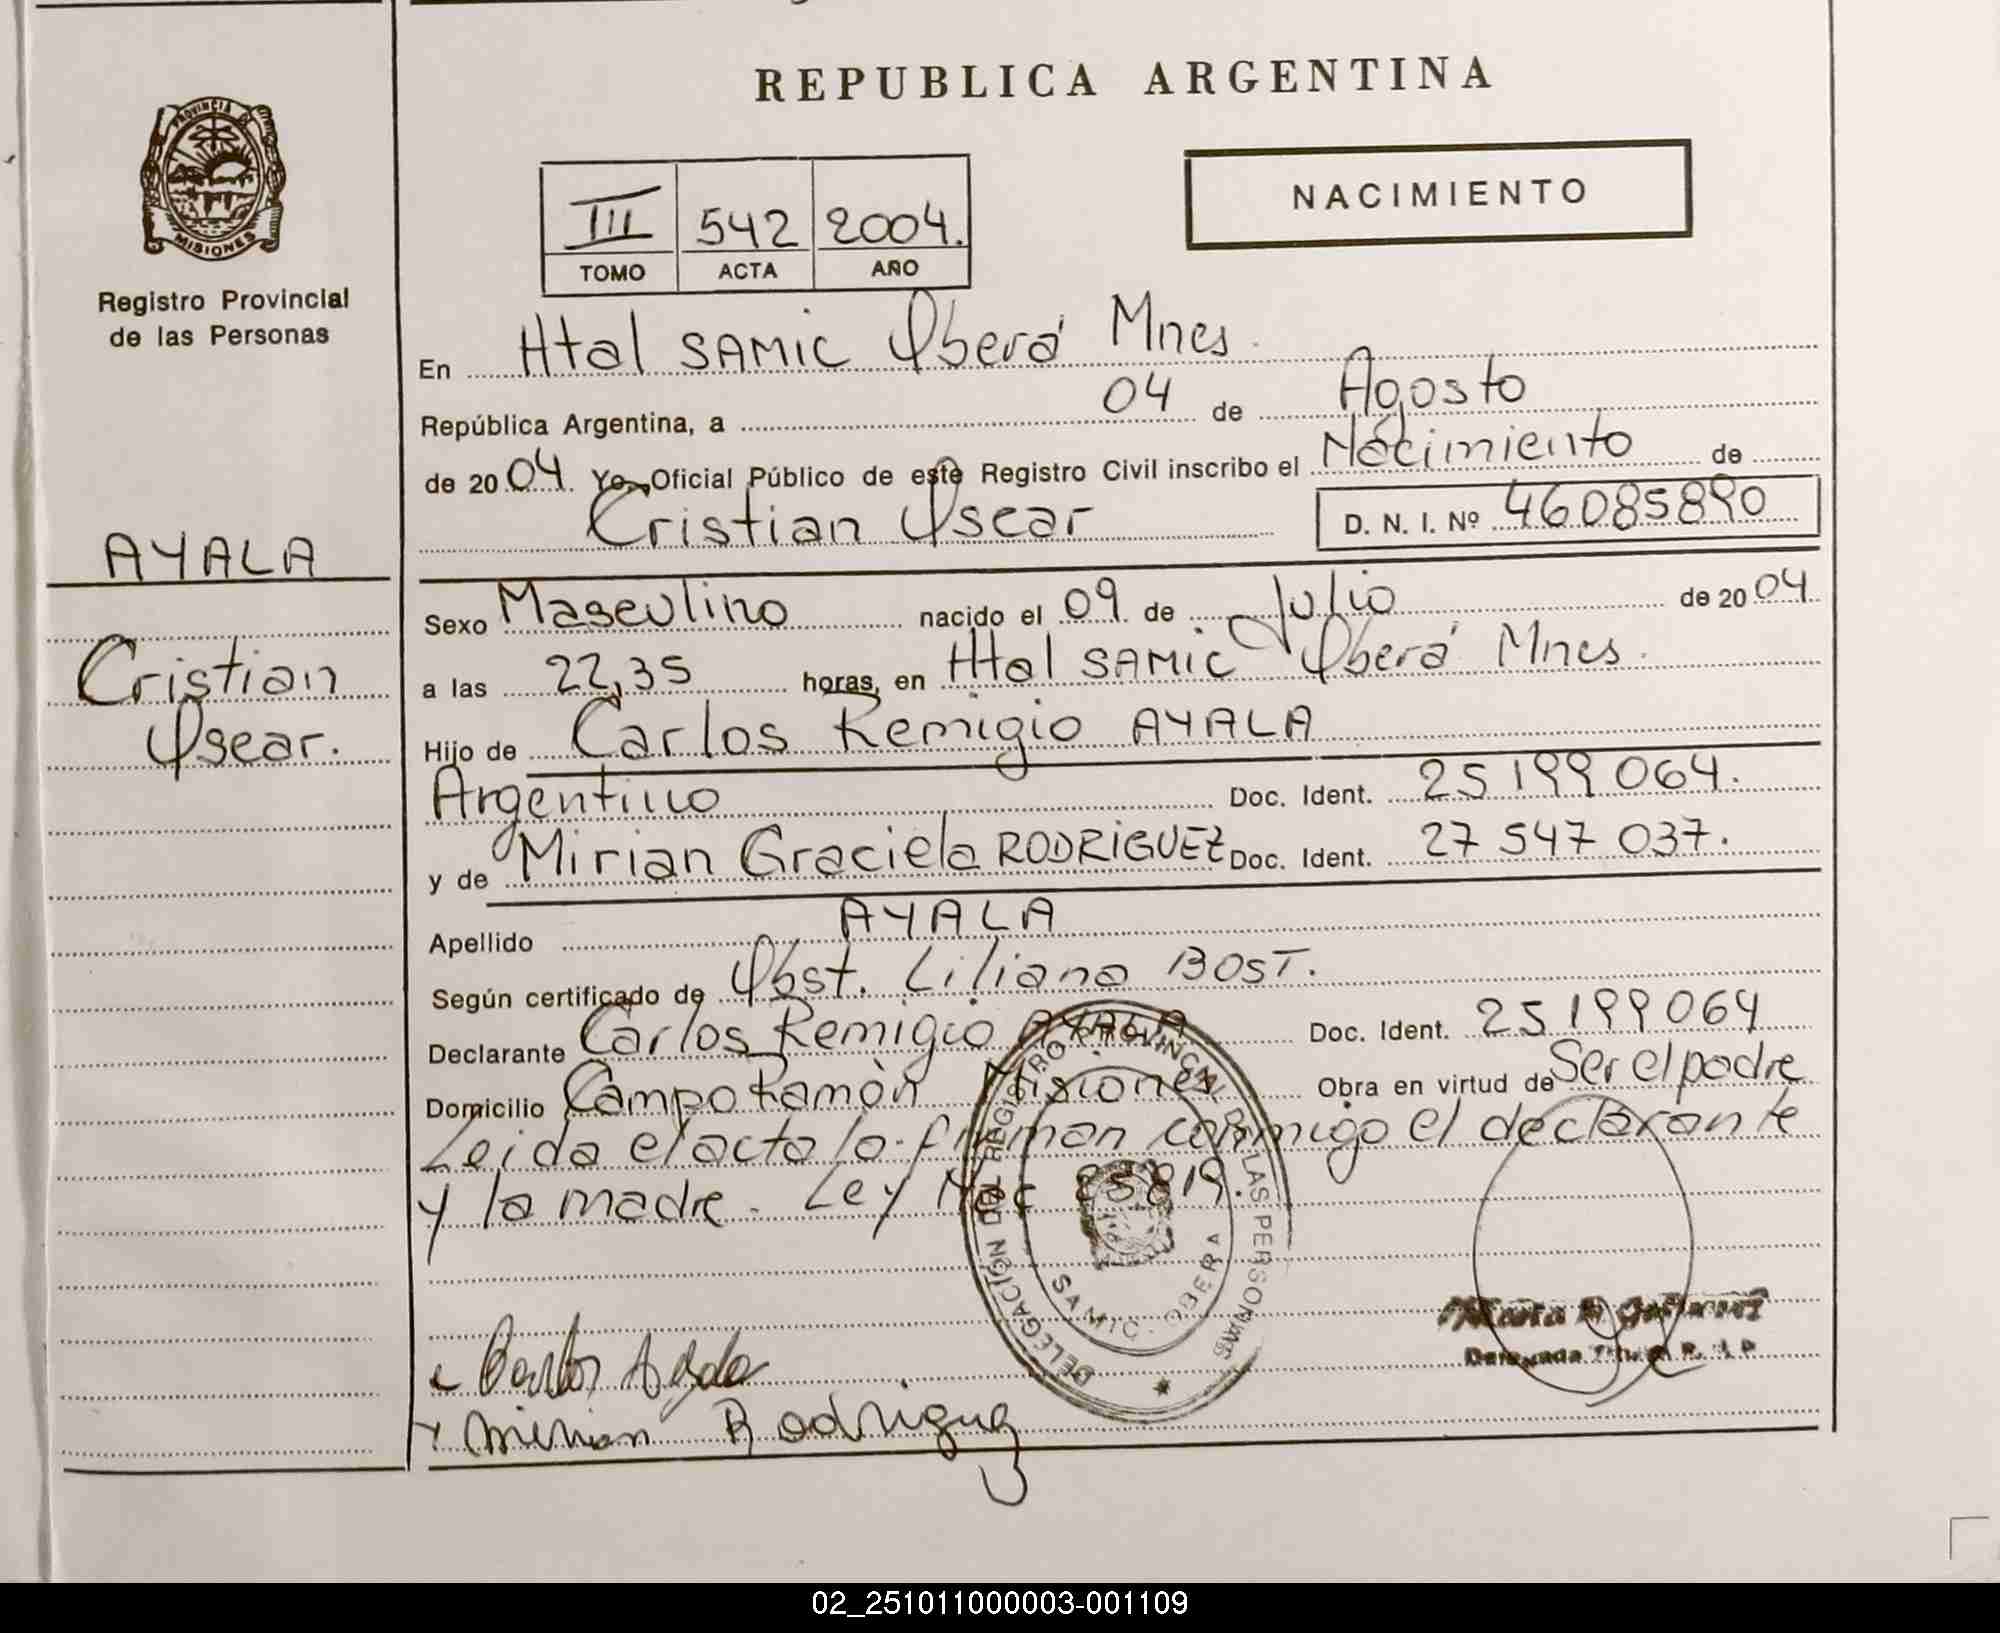 REPUBLICA ARGENTINA
PROVINCIA DE MISIONES
Registro Provincial
de las Personas
NACIMIENTO
III 542 2004.
TOMO ACTA AÑO
En Htal SAMIC Oberá Mnes.
República Argentina, a 04 de Agosto
de 2004. Yo, Oficial Público de este Registro Civil inscribo el Nacimiento de
Cristian Oscar D. N. I. Nº 46085890
AYALA
Cristian
Oscar.
Sexo Masculino nacido el 09 de Julio de 2004
a las 22,35 horas, en Htal SAMIC Oberá Mnes.
Hijo de Carlos Remigio AYALA
Argentino Doc. Ident. 25199064.
y de Mirian Graciela RODRIGUEZ Doc. Ident. 27 547 037.
Apellido AYALA
Según certificado de Obst. Liliana BOST.
Declarante Carlos Remigio AYALA Doc. Ident. 25199064
Domicilio Campo Ramón Misiones Obra en virtud de Ser el padre
Leida el acta la firman conmigo el declarante
y la madre. Ley Nac 25819.
DELEGACION DEL REGISTRO PROVINCIAL DE LAS PERSONAS
SAMIC - OBERA
Carlos Ayala
Mirian Rodriguez
02_251011000003-001109